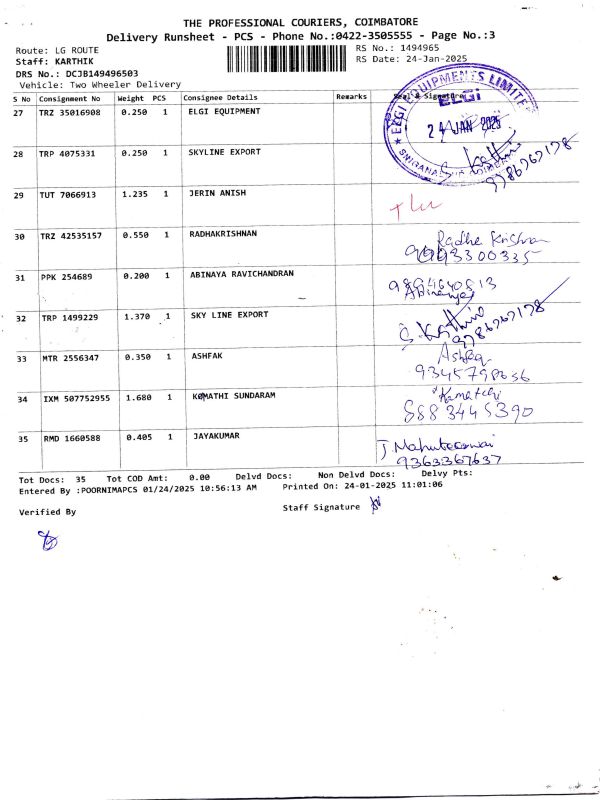 THE PROFESSIONAL COURIERS, COIMBATORE
Delivery Runsheet - PCS - Phone No.:0422-3505555 - Page No.:3
Route: LG ROUTE
RS No.: 1494965
Staff: KARTHIK
RS Date: 24-Jan-2025
DRS No.: DCJB149496503
Vehicle: Two Wheeler Delivery
S No Consignment No Weight PCS Consignee Details Remarks Seal & Signature
27 TRZ 35016908 0.250 1 ELGI EQUIPMENT
ELGI EQUIPMENTS LIMITED
ELGi
24 JAN 2025
28 TRP 4075331 0.250 1 SKYLINE EXPORT
9786767178
29 TUT 7066913 1.235 1 JERIN ANISH
30 TRZ 42535157 0.550 1 RADHAKRISHNAN Radha Krishnan
31 PPK 254689 0.200 1 ABINAYA RAVICHANDRAN 9894640813
Abinaya
32 TRP 1499229 1.370 1 SKY LINE EXPORT S. Karthik
9786767178
33 MTR 2556347 0.350 1 ASHFAK Ashfaq
9345798656
34 IXM 507752955 1.680 1 KOMATHI SUNDARAM Kamatchi
8883445390
35 RMD 1660588 0.405 1 JAYAKUMAR
9363367637
Tot Docs: 35 Tot COD Amt: 0.00 Delvd Docs: Non Delvd Docs: Delvy Pts:
Entered By :POORNIMAPCS 01/24/2025 10:56:13 AM Printed On: 24-01-2025 11:01:06
Verified By
Staff Signature